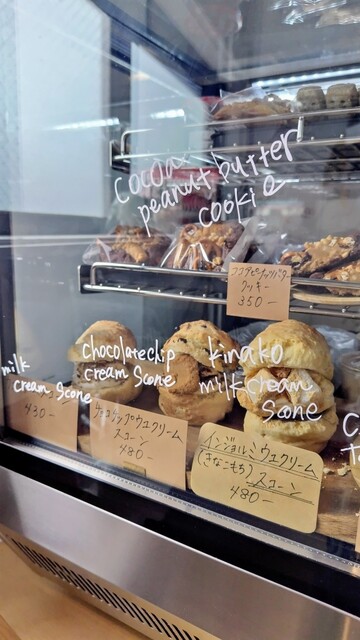 cocoa
peanut butter
cookie
ココアピーナッツバター
クッキー
350-
milk
cream Scone
430-
chocolatechip
cream Scone
チョコチップウユクリーム
スコーン
480-
kinako
milkcream
Sone
インジョルミウユクリーム
(きなこもち) スコーン
480-